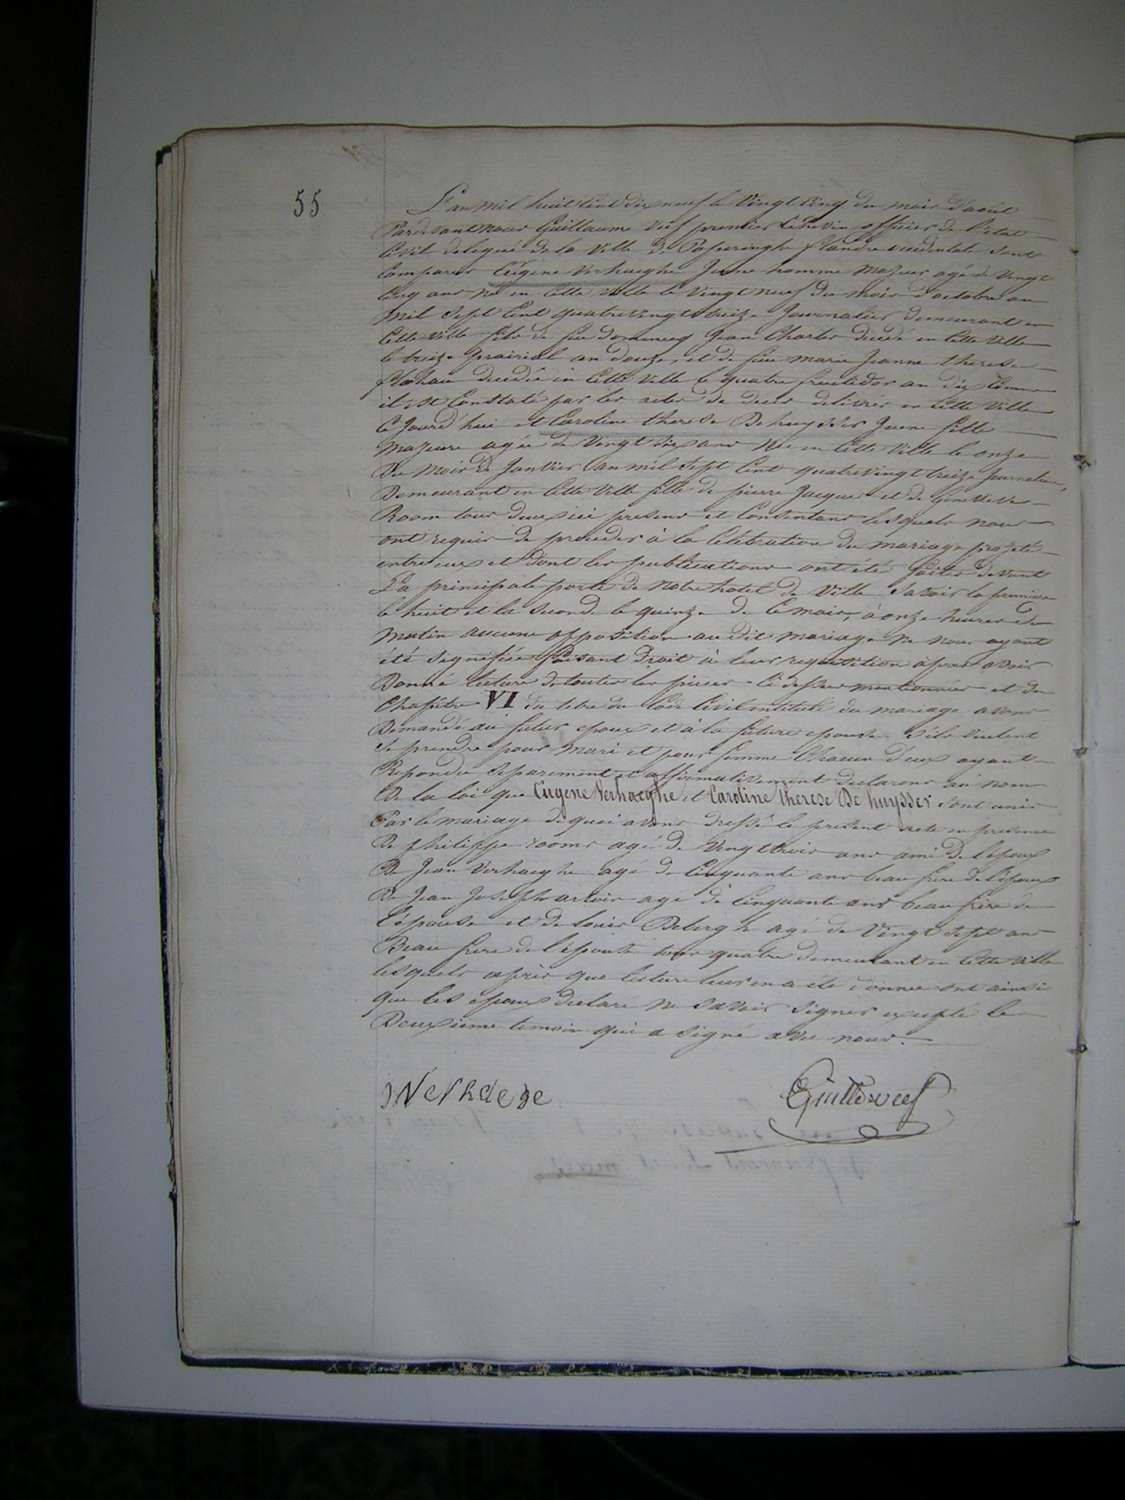 55
L'an mil huit cent dix neuf le vingt cinq du mois d'août
Pardevant nous Guillaume Veif premier Echevin officier de l'état
Civil delegué de la ville de Poperinghe flandre occidentale sont
Comparus Eugene Verhaeghe Jeune homme majeur agé de vingt
Cinq ans né en cette ville le vingt neuf du mois d'octobre an
Mil sept cent quatrevingt treize Journalier demeurant en
Cette ville fils de feu Domenicq Jean Charles decedé en cette ville
le treize prairial an douze, et de feue marie Jeanne therese
decedée en cette ville le quatre fructidor an dix comme
il est constaté par les actes de deces delivrés en cette ville
ce Jourd'hui et Caroline therese Dehuysser Jeune fille
majeure agée de vingt six ans née en cette ville le onze
du mois de Janvier an mil sept cent quatrevingt treize Journaliere,
Demeurant en cette ville fille de pierre Jacques et de Genevieve
Room tous deux ici presens et consentans lesquels nous
ont requis de proceder à la célébration du mariage projeté
entre eux et dont les publications ont été faites devant
La principale porte de notre hotel de ville savoir la premiere
le huit et la seconde le quinze de ce mois, à onze heures du
matin aucune opposition au dit mariage ne nous ayant
été signifiée faisant Droit à leur requisition apres avoir
Donné lecture de toutes les pieces ci dessus mentionnées et du
Chapitre VI du titre du Code Civil intitulé du mariage avons
Demandé au futur epoux et à la future epouse s'ils veulent
se prendre pour mari et pour femme chacun d'eux ayant
Repondu separement et affirmativement declarons au nom
De la loi que Eugene Verhaeghe et Caroline therese De huysser sont unis
Par le mariage de quoi avons dressé le present acte en presence
De philippe rooms agé de vingt trois ans ami de l'epoux
De Jean Verhaeghe agé de cinquante ans beau frere de l'epoux
De Jean Joseph agé de cinquante ans beau frere de
l'épouse et de Louis Deberg h agé de vingt sept ans
Beau frere de l'epouse tous quatre demeurant en cette ville
lesquels après que lecture leur en a été donnée ont ainsi
que les epoux declaré ne savoir signer excepté le
Deuxième temoin qui a signé avec nous.